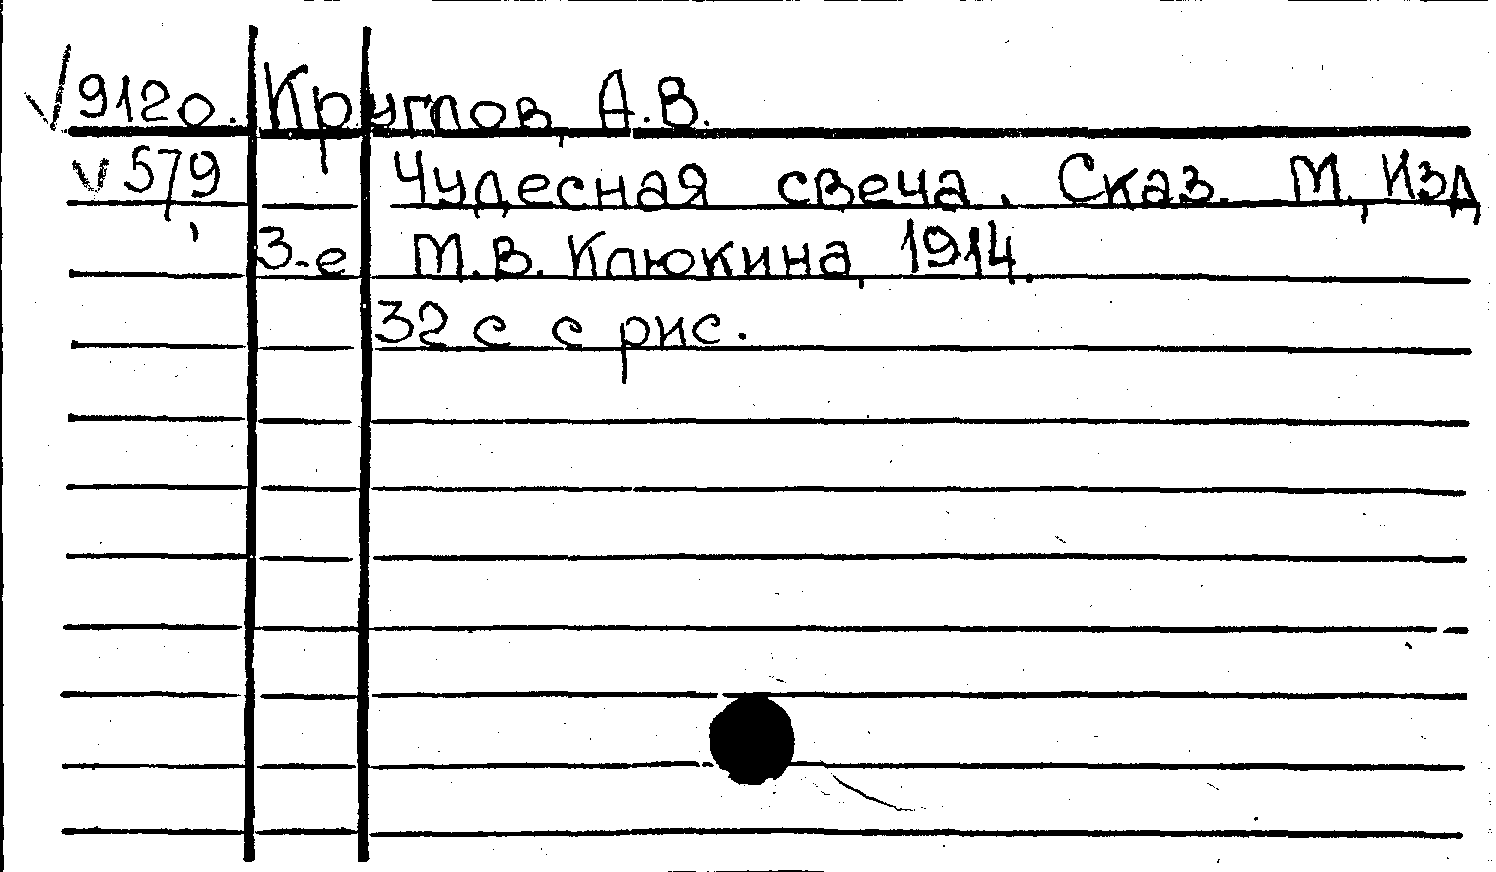 √912о. Круглов, А.В.
v 579 Чудесная свеча. Сказ. М., Изд
3-е М.В. Клюкина, 1914.
32 с с рис.